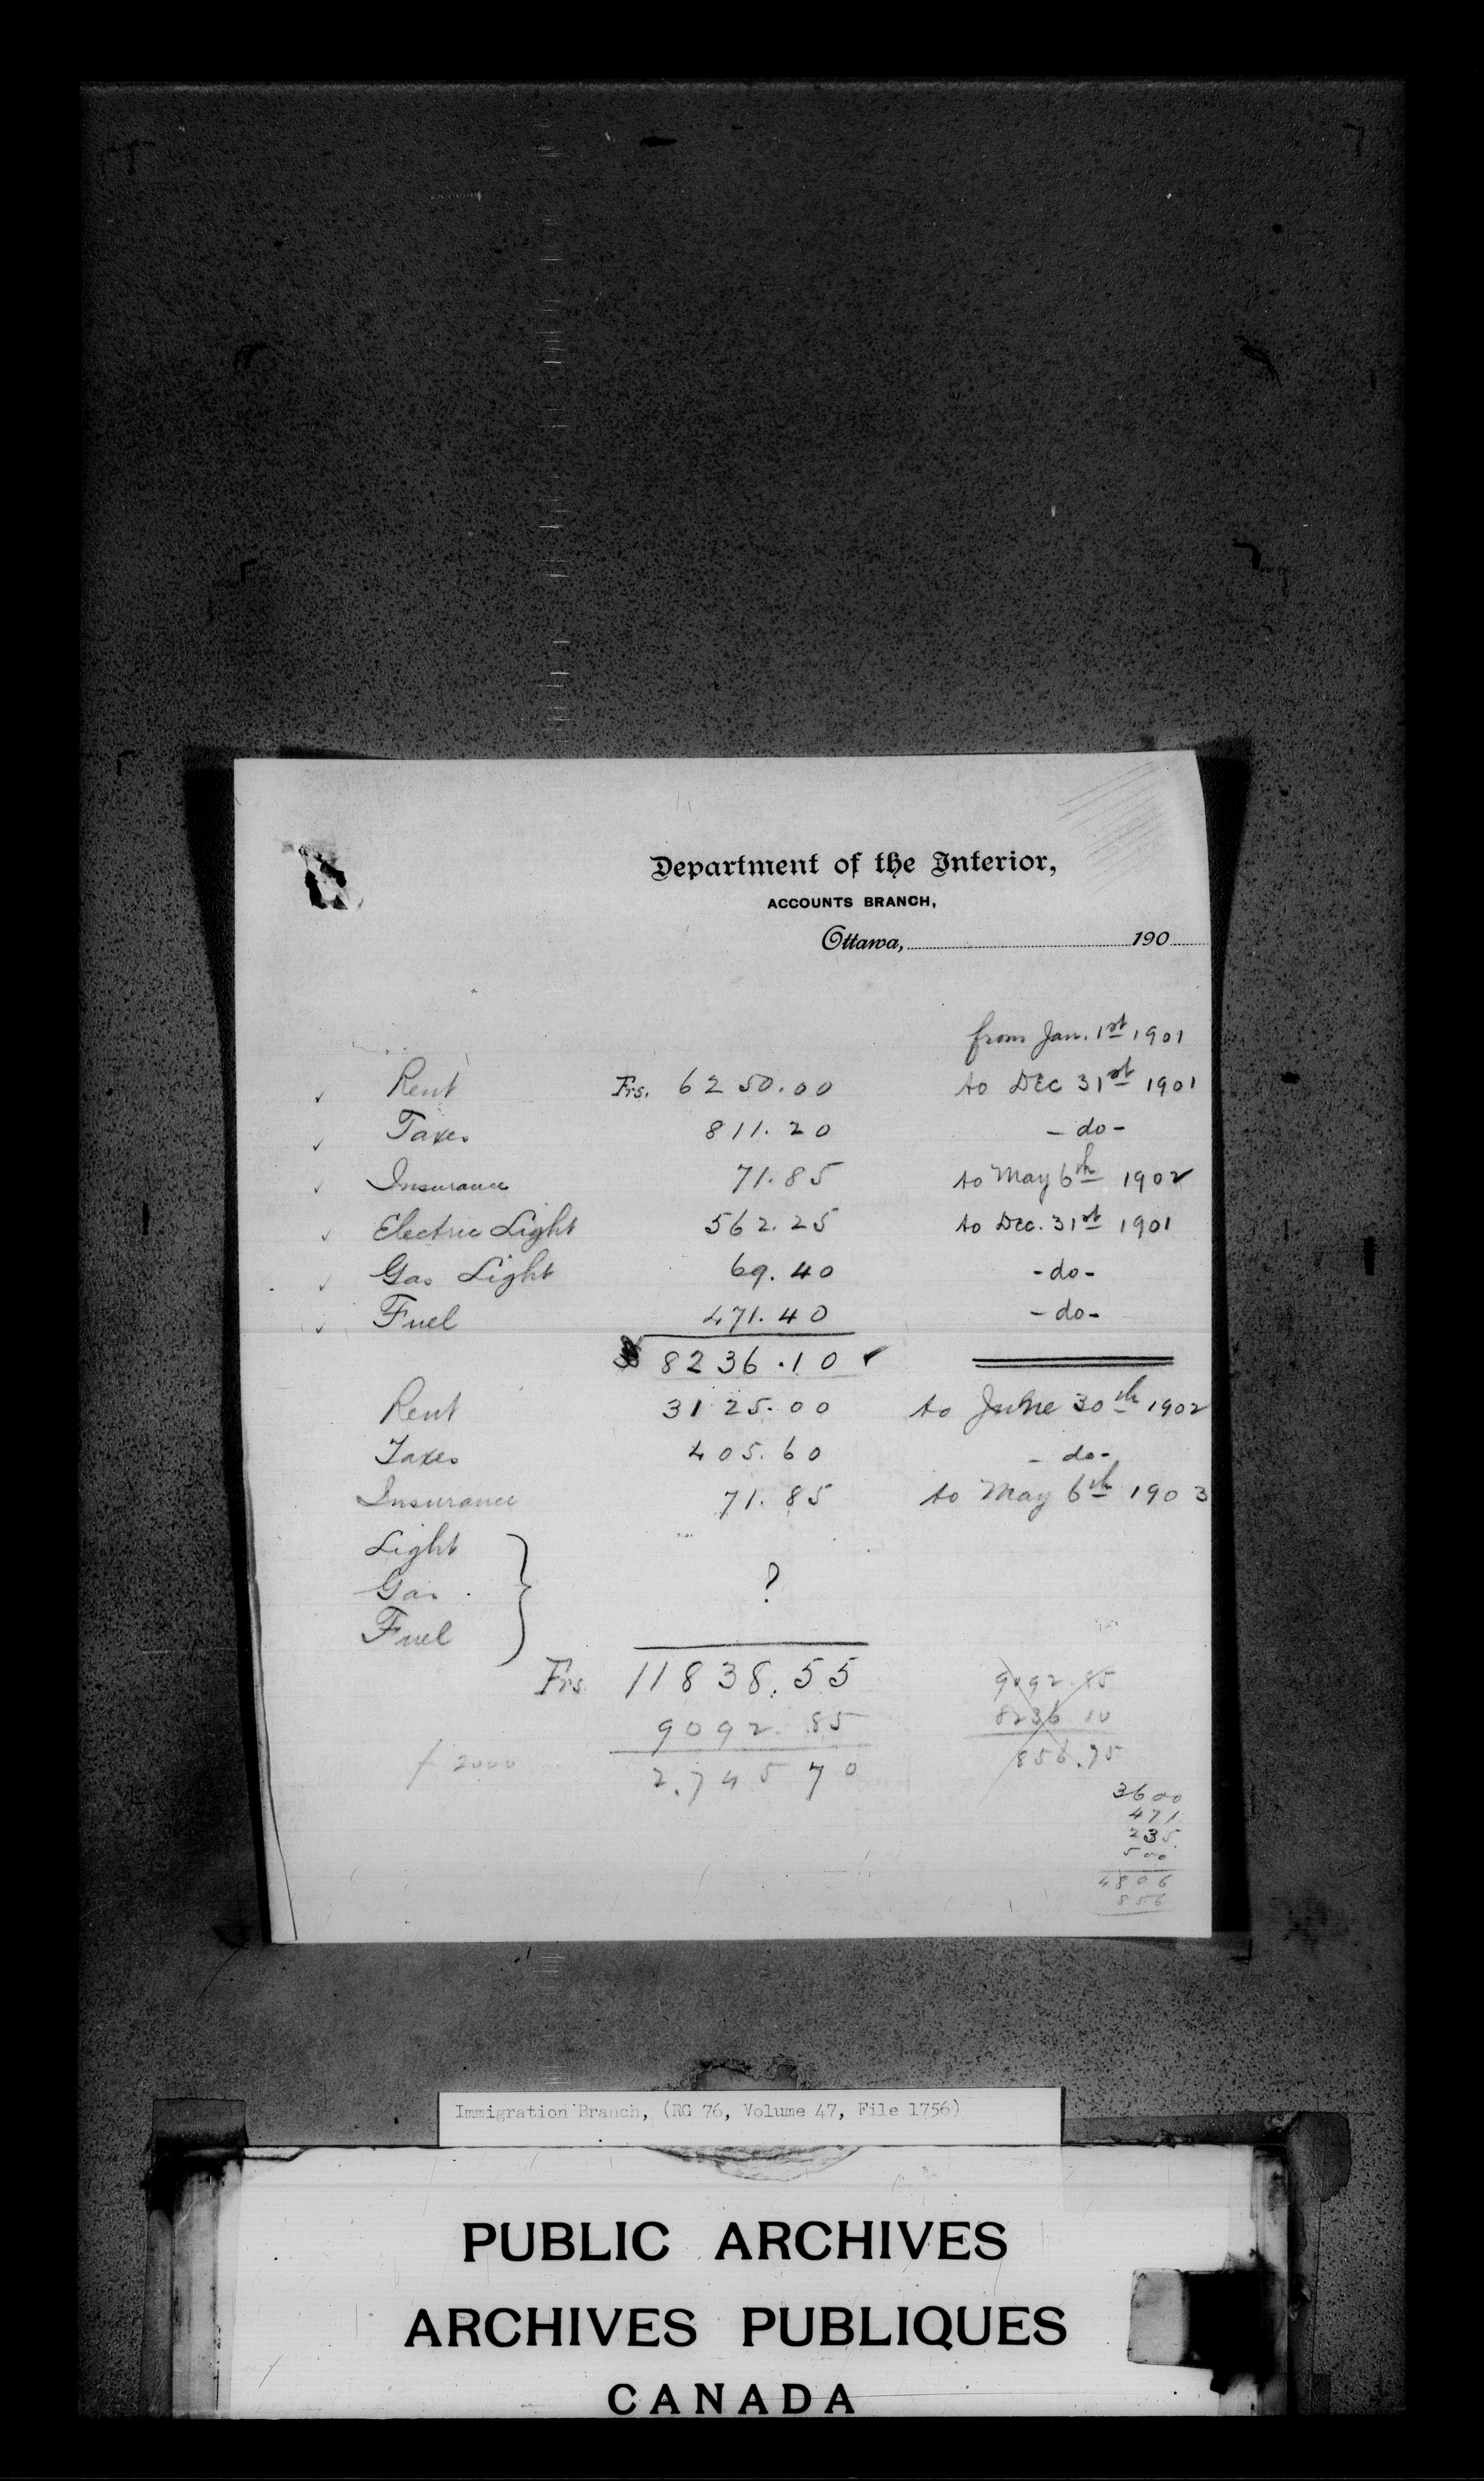 Department of the Interior,
ACCOUNTS BRANCH,
Ottawa, 190
from Jan. 1st 1901
✓ Rent Frs. 6250.00 to Dec 31st 1901
✓ Taxes 811.20 - do -
✓ Insurance 71.85 to May 6th 1902
✓ Electric Light 562.25 to Dec. 31st 1901
✓ Gas Light 69.40 - do -
✓ Fuel 471.40 - do -
8236.10 ✓
Rent 3125.00 to June 30th 1902
Taxes 405.60 - do -
Insurance 71.85 to May 6th 1903
Light
Gas ?
Fuel
Frs. 11838.55
9092.85
2000 2.745 70
9092.85
8236 10
856.75
3600
471
235
500
4806
856
Immigration Branch, (RG 76, Volume 47, File 1756)
PUBLIC ARCHIVES
ARCHIVES PUBLIQUES
CANADA